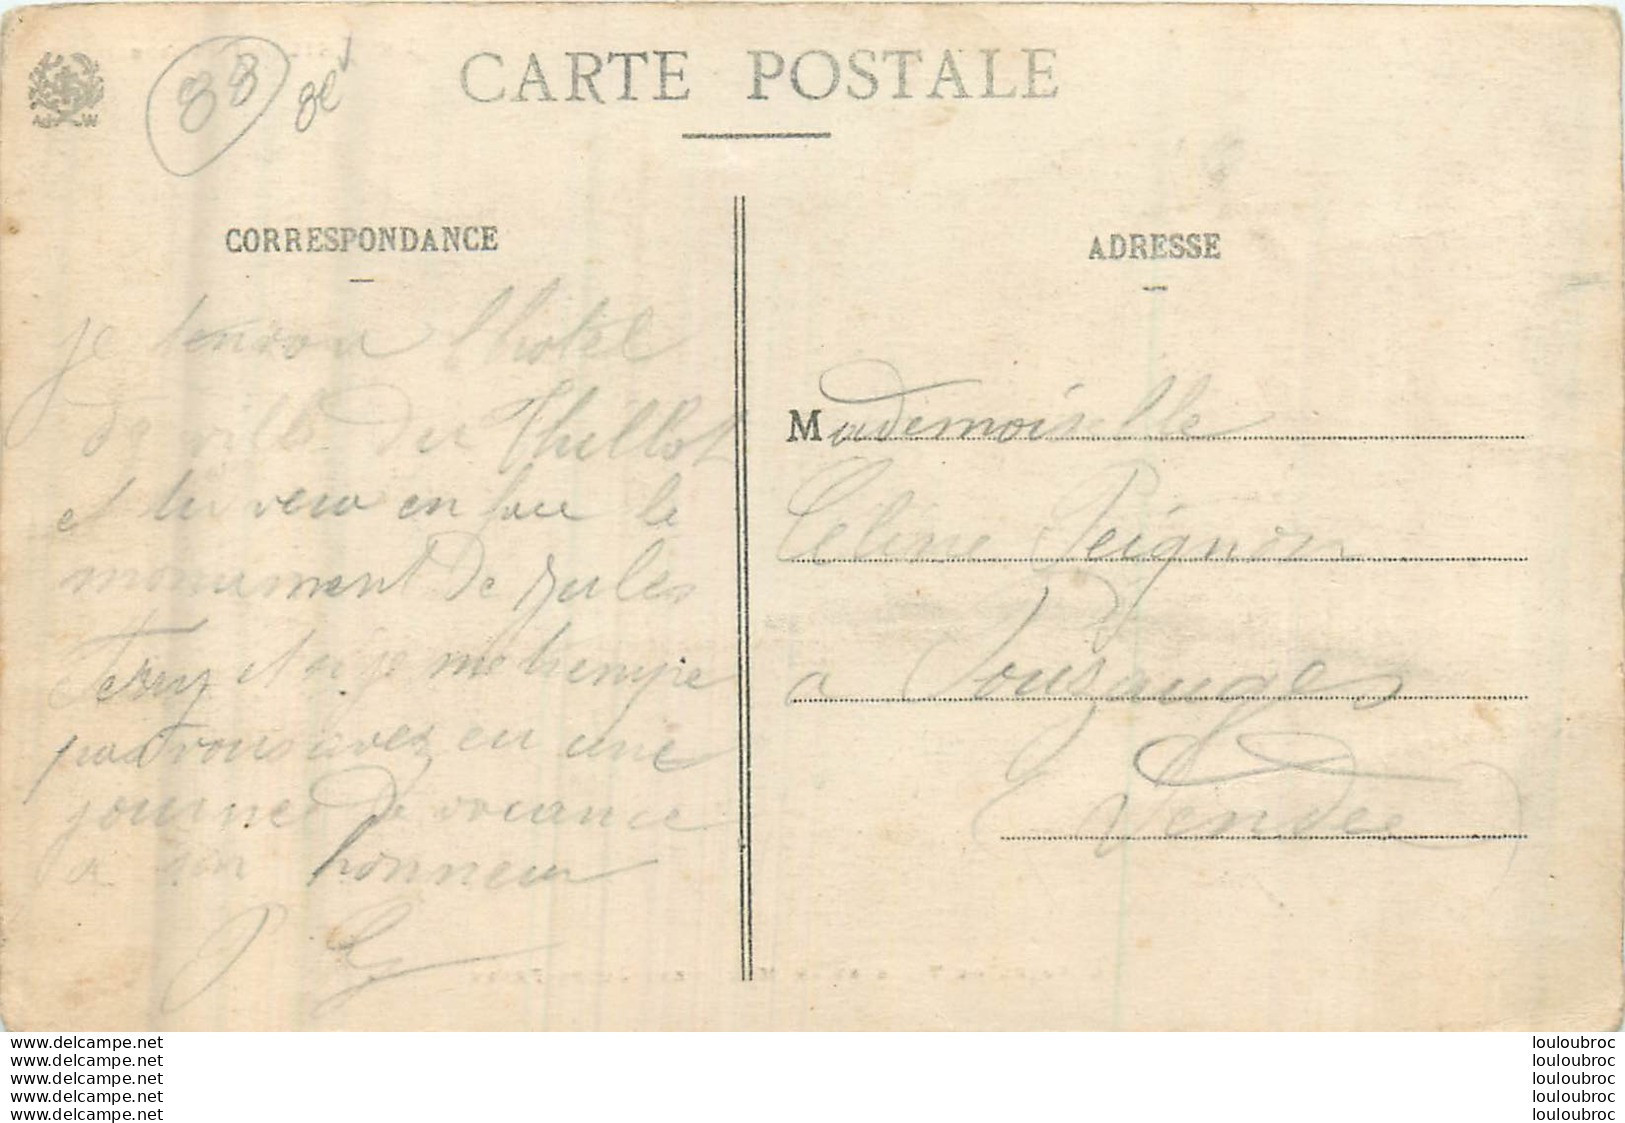 88
8e
CARTE POSTALE
CORRESPONDANCE
je l'hotel
de ville du Thillot
et tu vera en face le
monument de Jules
Ferry et si je me trempe
pas vous avez eu une
journe de vacance
a son honneur
ADRESSE
Mademoiselle
Céline Peignon
a Pouzauges
Vendee
www.delcampe.net
www.delcampe.net
www.delcampe.net
www.delcampe.net
www.delcampe.net
louloubroc
louloubroc
louloubroc
louloubroc
louloubroc